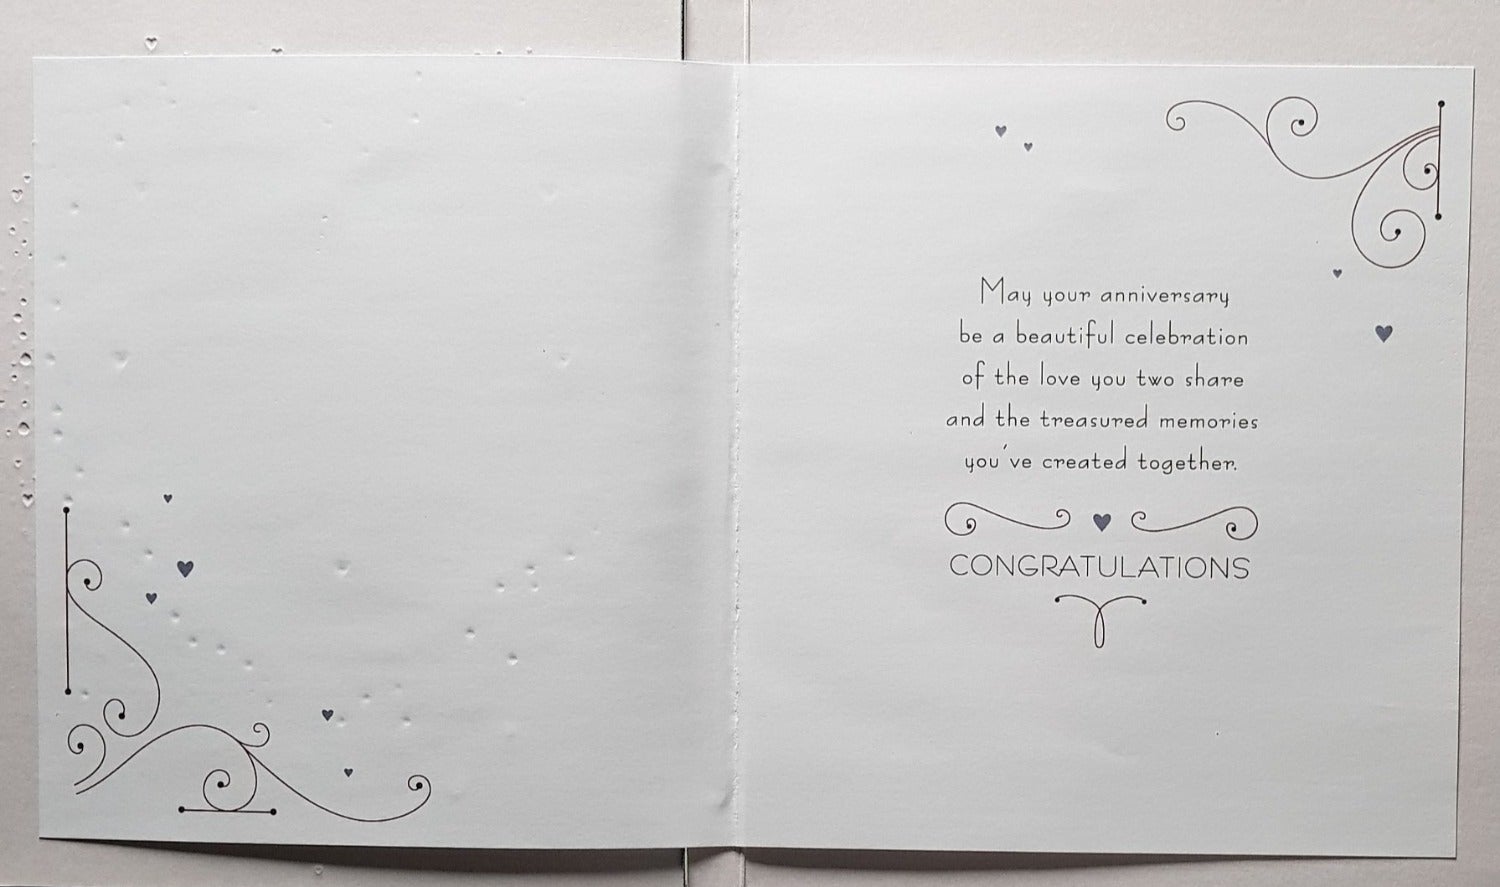 May your anniversary
be a beautiful celebration
of the love you two share
and the treasured memories
you've created together.
CONGRATULATIONS